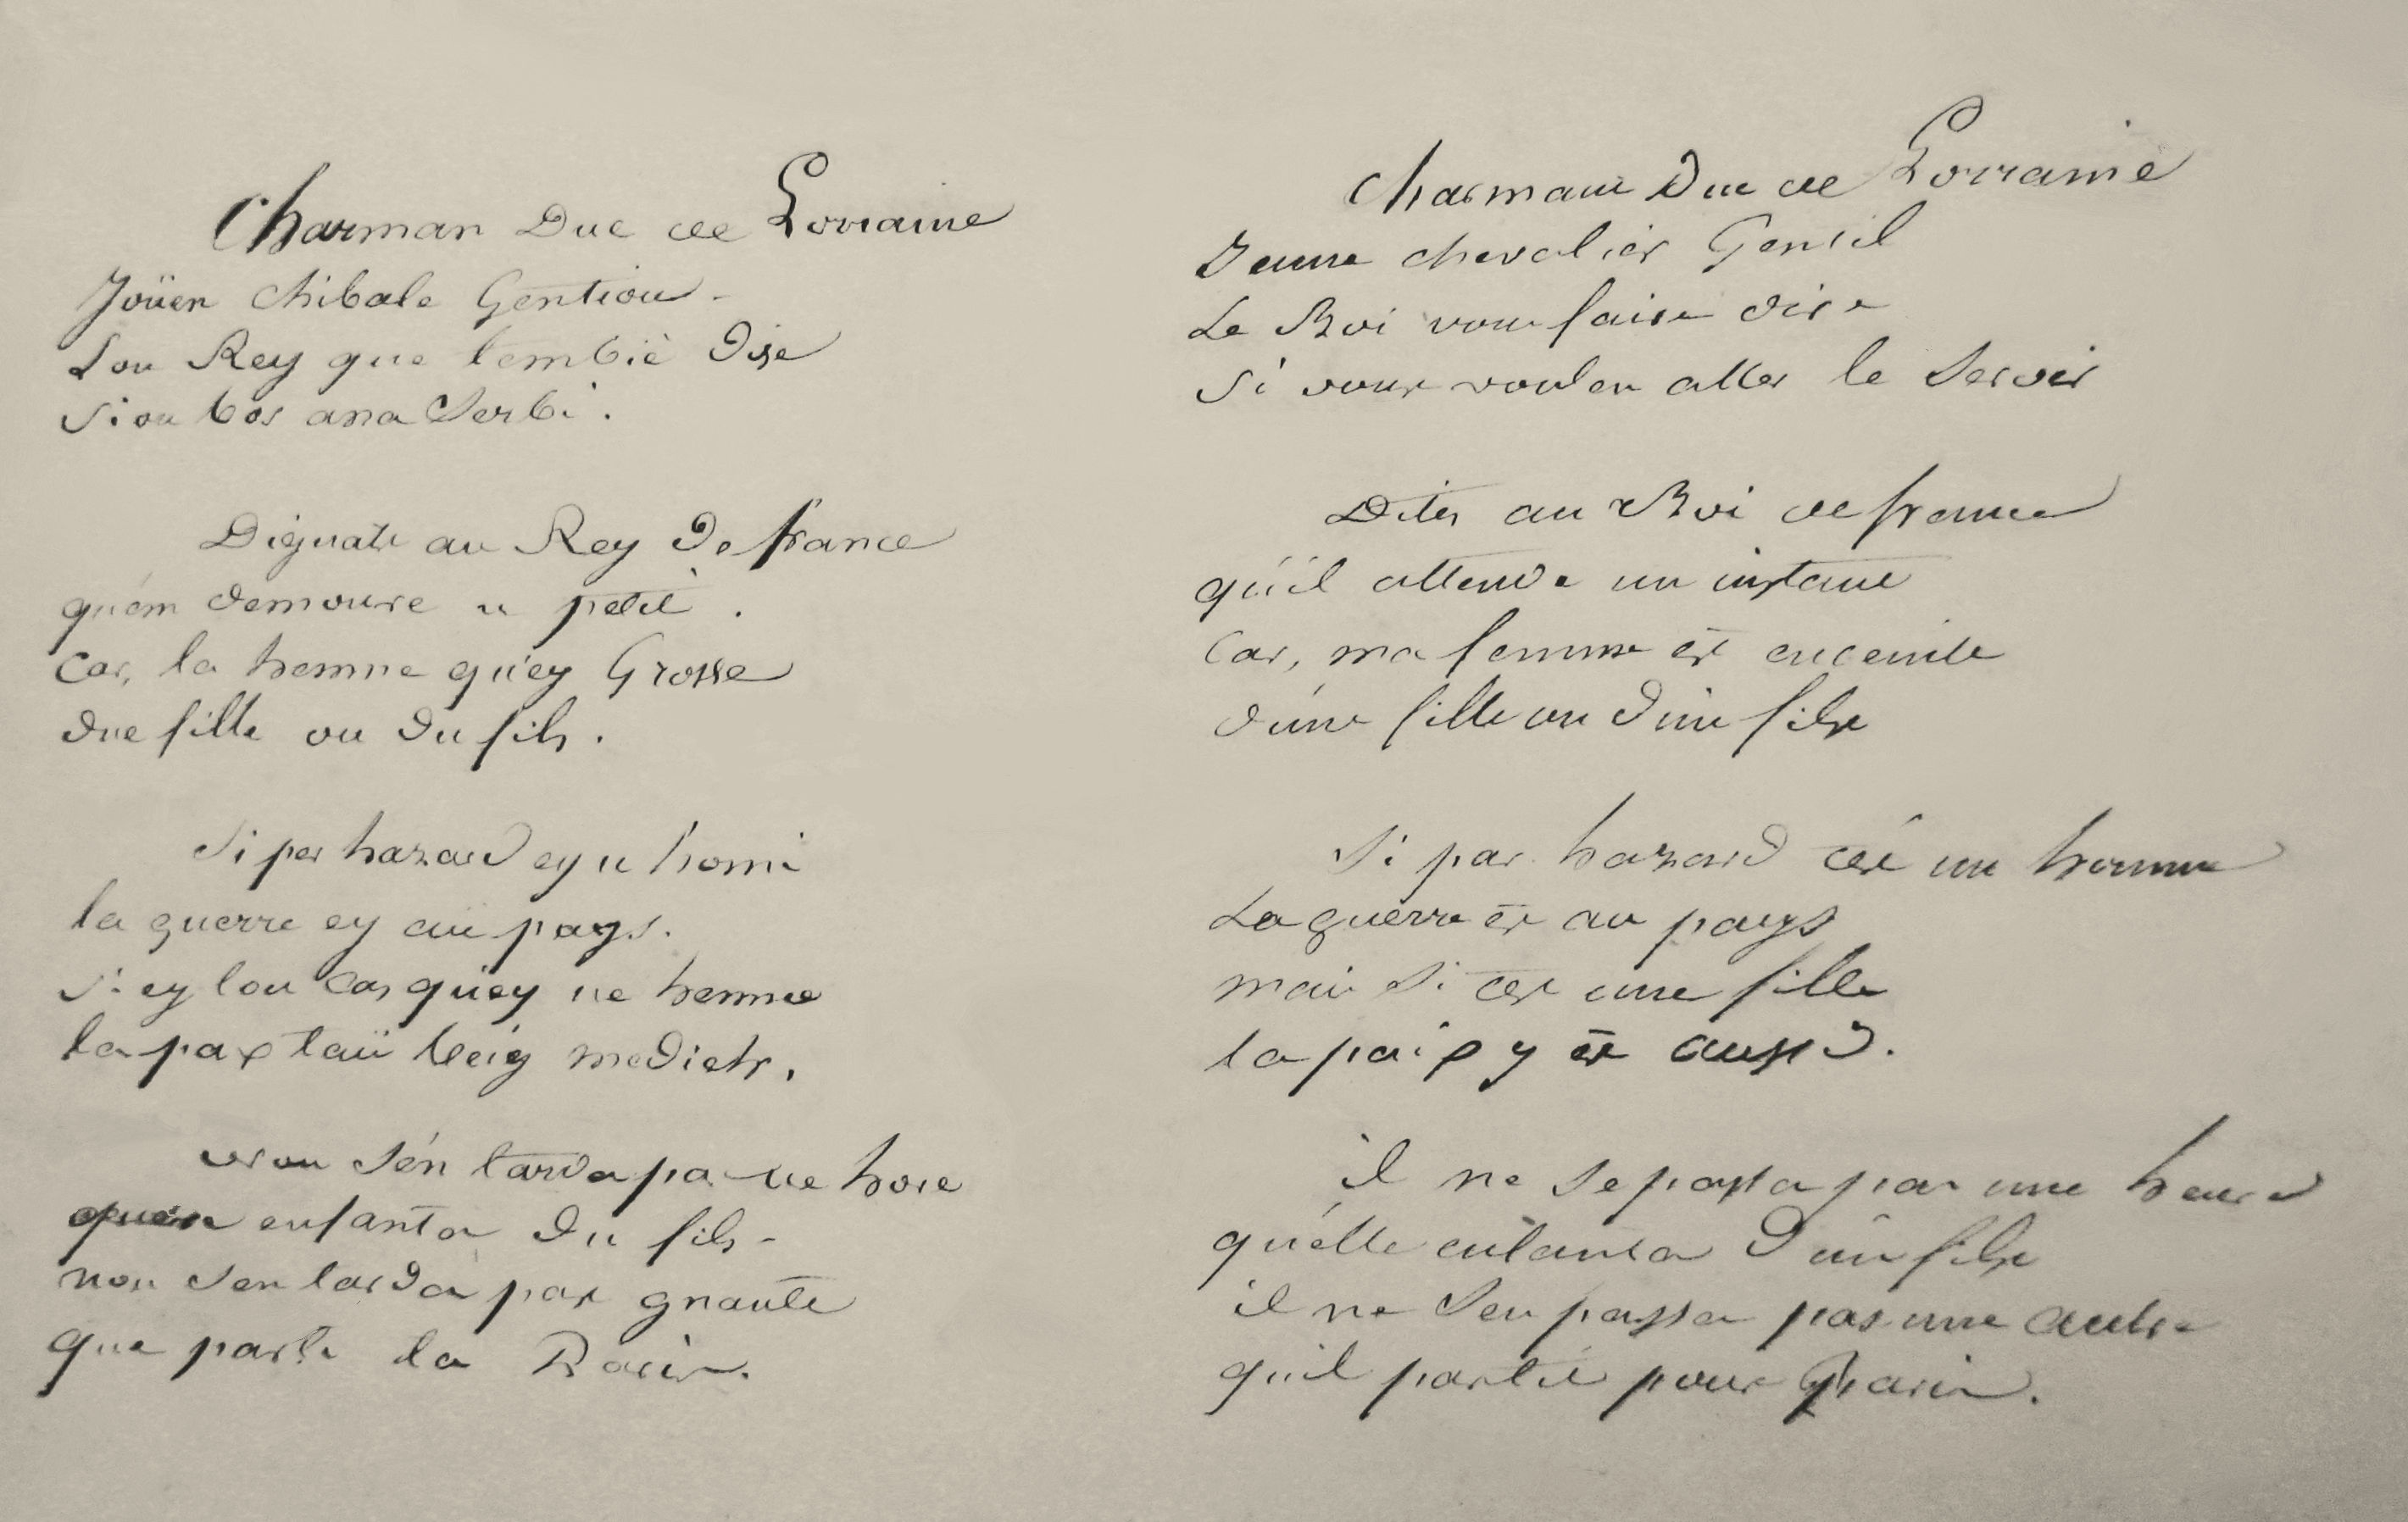 Charman Duc de Lorraine
Joüen chibale Gentiou -
Lou Rey que t'embiè dise
Si ou bos ana Serbi.
Dignats au Rey de france
qu'em demoure u petit.
Car, la henne qu'ey Grosse
due fille ou du fils.
Si per hazard ey u homi
la guerre ey aü pays.
Si ey lou cas qu'ey ue henne
la pax taü béig medich.
nou s'en tarda pa ue hore
enfanta du fils -
nou s'en tarda pas gnaute
que parti ta Paris.
Charmant Duc de Lorraine
Jeune chevalier Gentil
Le Roi vous faire dire
Si vous voulez aller le Servir
Dites au Roi de france
qu'il attende un instant
Car, ma femme est enceinte
d'une fille ou d'un fils
Si par hazard c'est un homme
La guerre est au pays
mais si c'est une fille
la paix y est aussi.
il ne se passa pas une heure
qu'elle enfanta d'un fils
il ne s'en passa pas une autre
qu'il partit pour Paris.